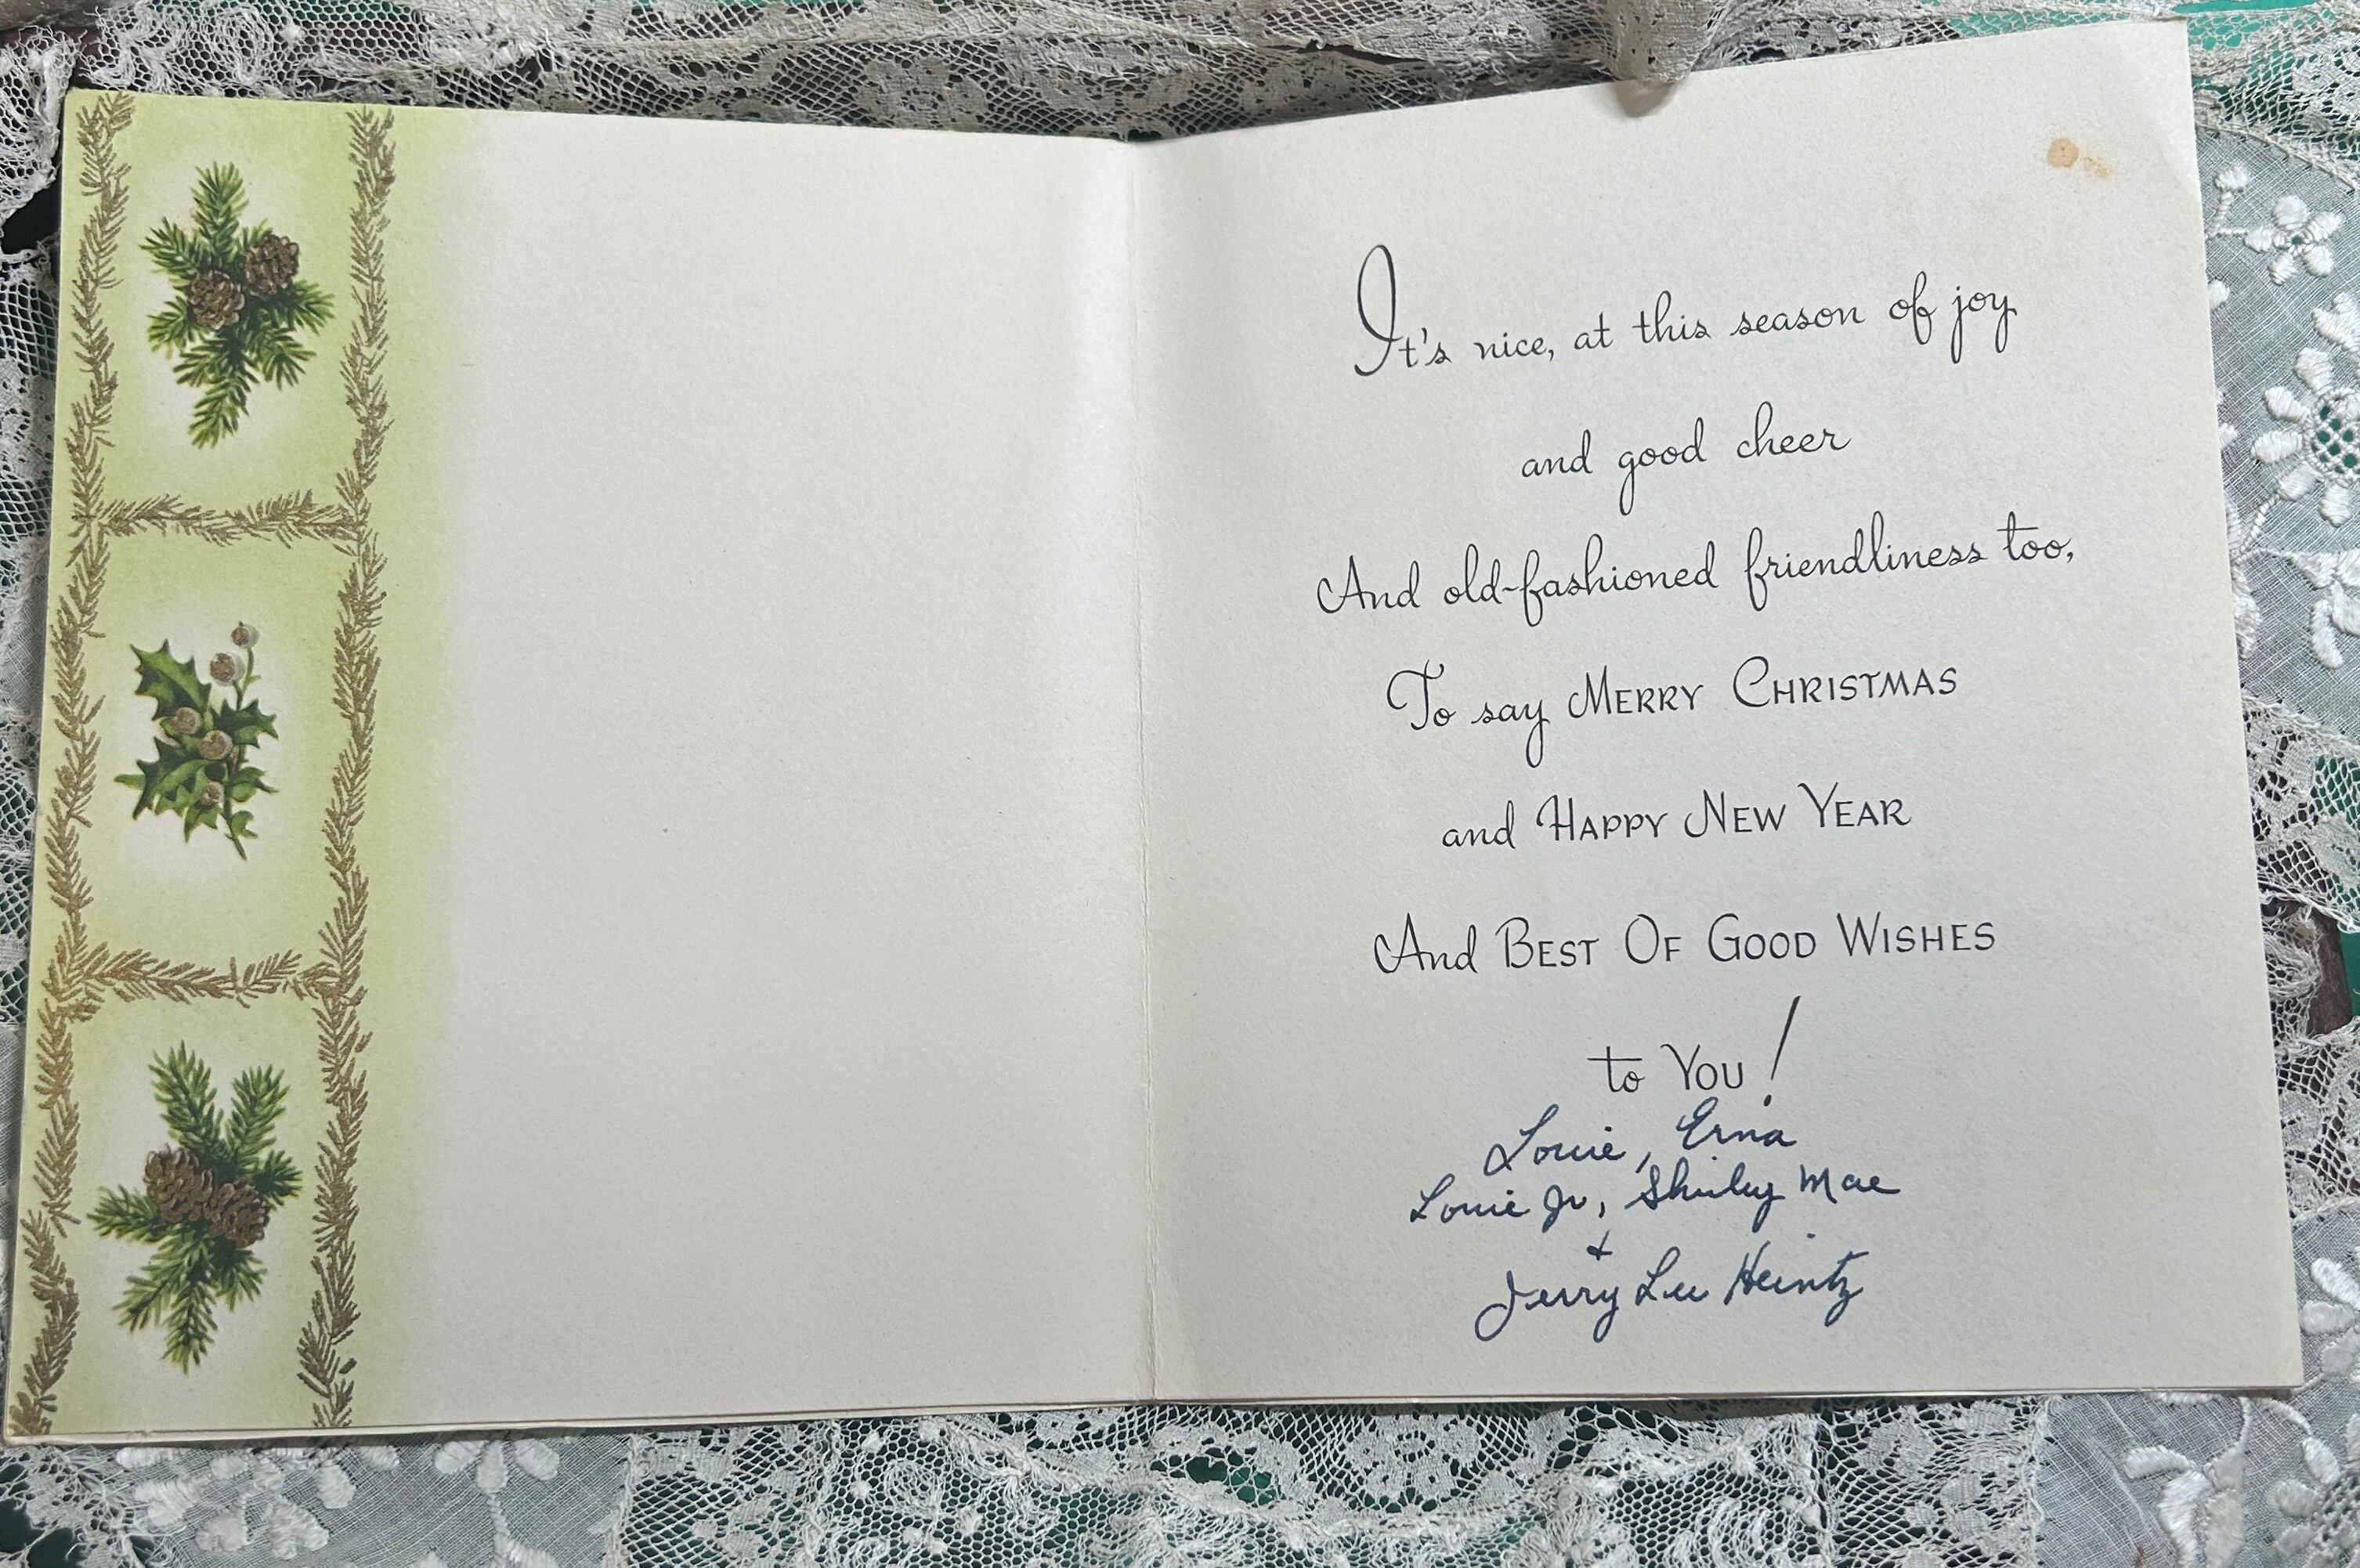 It's nice, at this season of joy
and good cheer
And old-fashioned friendliness too,
To say MERRY CHRISTMAS
and HAPPY NEW YEAR
And BEST OF GOOD WISHES
to YOU!
Louie, Erna
Louie Jr, Shirley Mae
+
Jerry Lee Heintz